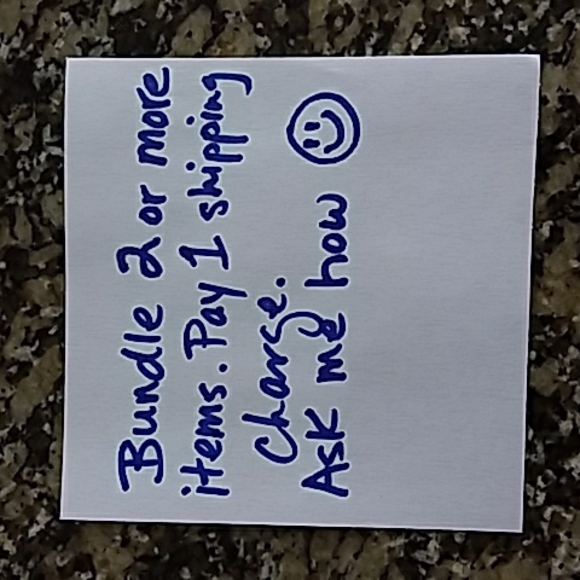 Bundle 2 or more
items. Pay 1 shipping
charge.
Ask me how